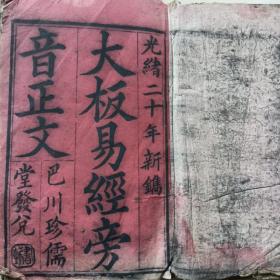 光緒二十年新鐫
大板易經旁
音正文
巴川珍儒
堂發兌